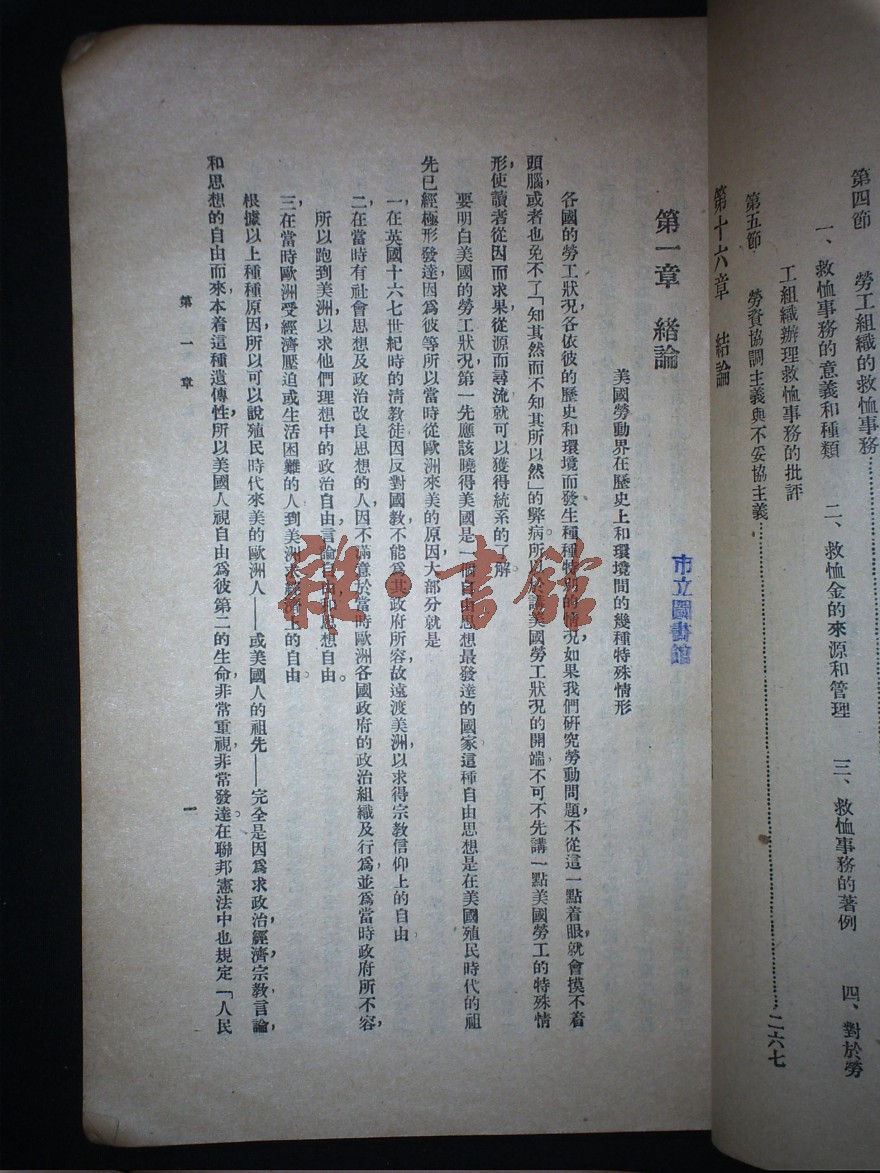 第四節　勞工組織的救恤事務
一、救恤事務的意義和種類　二、救恤金的來源和管理　三、救恤事務的著例　四、對於勞
工組織辦理救恤事務的批評
第五節　勞資協調主義與不妥協主義
第十六章　結論……二六七
市立圖書館
第一章　緒論
美國勞動界在歷史上和環境間的幾種特殊情形
各國的勞工狀況各依彼的歷史和環境而發生種種特別的情況如果我們研究勞動問題，不從這一點着眼，就會摸不着
頭腦，或者也免不了「知其然而不知其所以然」的弊病。所以於講美國勞工狀況的開端，不可不先講一點美國勞工的特殊情
形，使讀者從因而求果從源而尋流就可以獲得統系的了解。
要明白美國的勞工狀況，第一先應該曉得美國是一個自由思想最發達的國家這種自由思想是在美國殖民時代的祖
先已經極形發達，因爲彼等所以當時從歐洲來美的原因大部分就是
一、在英國十六七世紀時的清教徒因反對國教，不能爲其政府所容，故遠渡美洲，以求得宗教信仰上的自由。
二、在當時有社會思想及政治改良思想的人因不滿意於當時歐洲各國政府的政治組織及行爲，並爲當時政府所不容，
所以跑到美洲以求他們理想中的政治自由，言論自由和思想自由。
三、在當時歐洲受經濟壓迫或生活困難的人，到美洲求經濟上的自由。
根據以上種種原因，所以可以說殖民時代來美的歐洲人——或美國人的祖先——完全是因爲求政治，經濟，宗教，言論，
和思想的自由而來，本着這種遺傳性，所以美國人視自由爲彼第二的生命，非常重視，非常發達。在聯邦憲法中也規定「人民
第一章
一
雜·書館